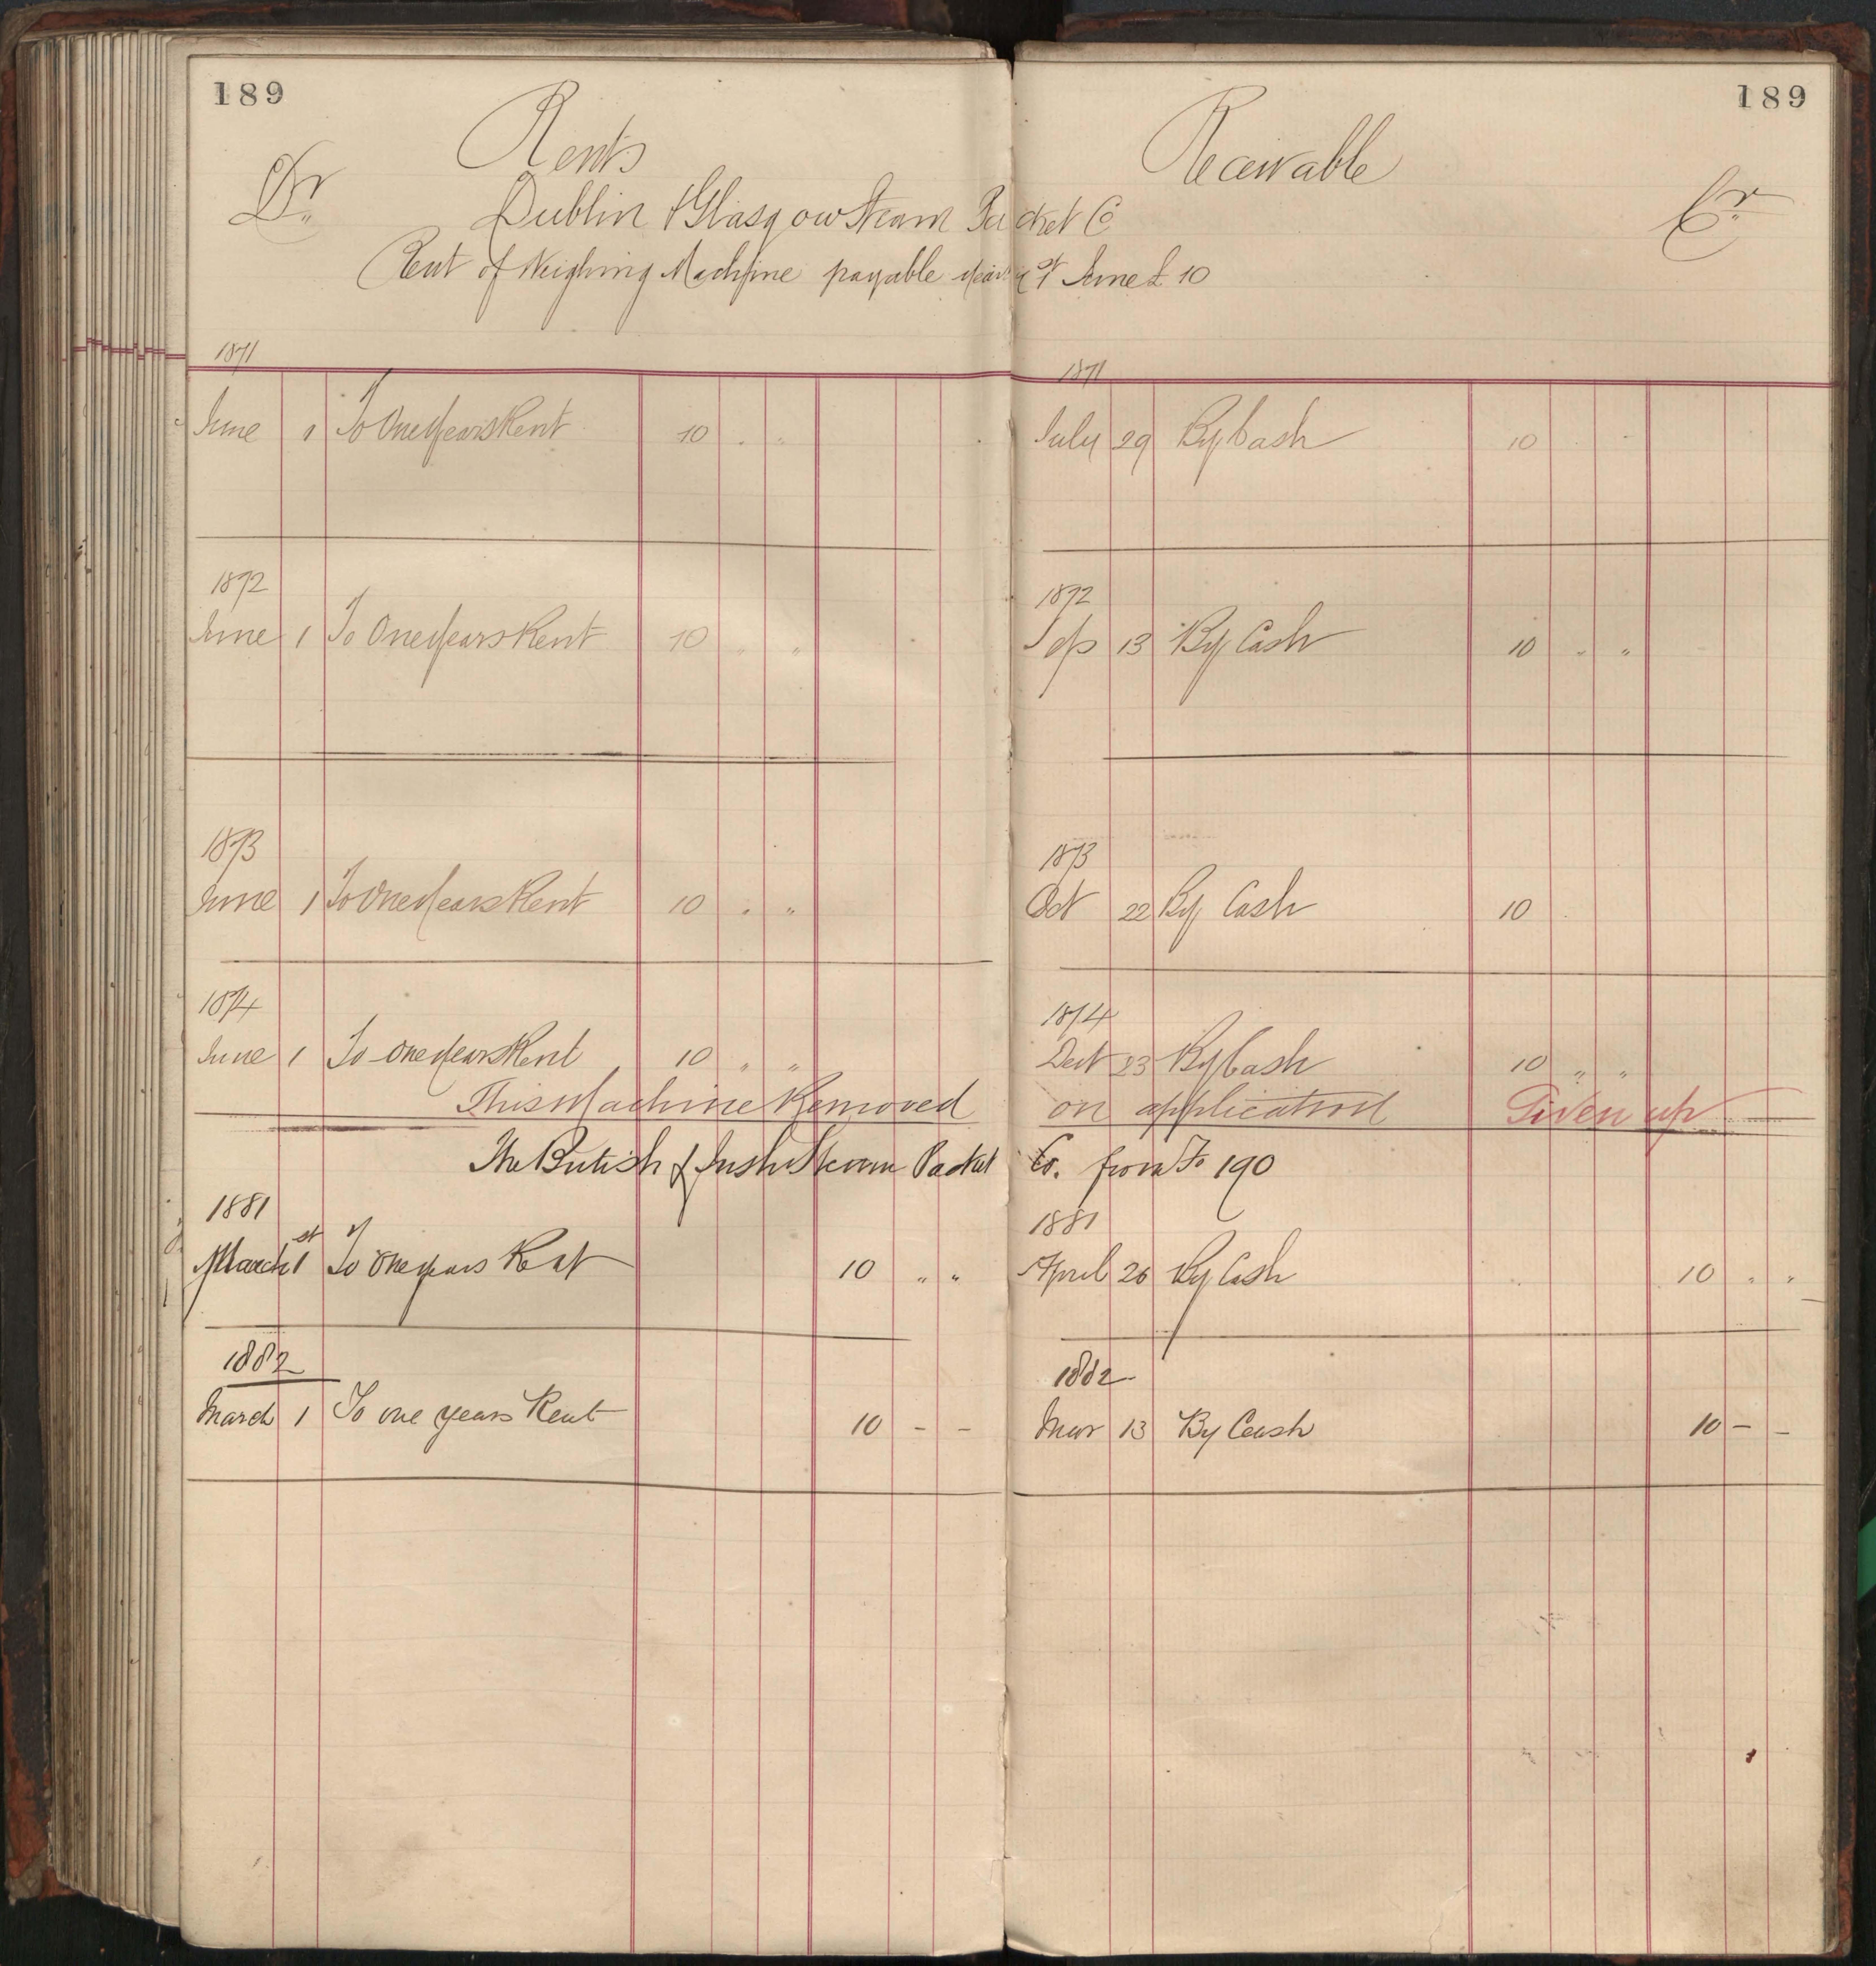 189 189
Rents Receivable
Dr Dublin & Glasgow Steam Packet Co Cr
Rent of Weighing Machine payable yearly 1st June £ 10
1871 1871
June 1 To One Years Rent 10 " " July 29 By Cash 10
1872 1872
June 1 To One Years Rent 10 " " Sep 13 By Cash 10 " "
1873 1873
June 1 To One Years Rent 10 " " Oct 22 By Cash 10
1874 1874
June 1 To One Years Rent 10 " " 23 By Cash 10 " "
This Machine Removed on application Given up
The British & Irish Steam Packet Co. from Fo 190
1881 1881
March 1st To One years Rent 10 " " April 26 By Cash 10 " "
1882 1882
March 1 To one years Rent 10 - - Mar 13 By Cash 10 - -